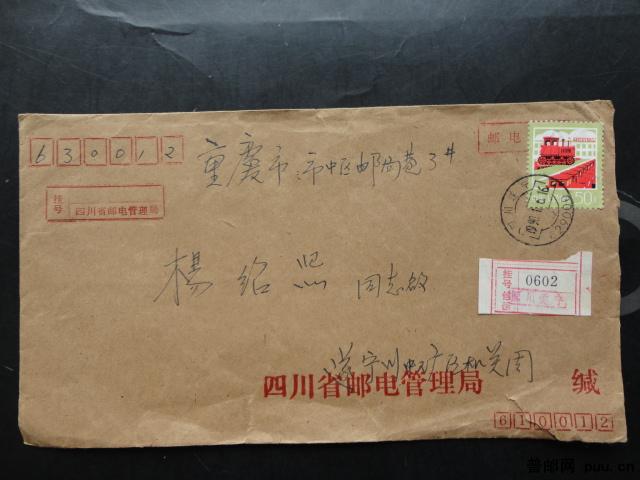 630012
邮电
重慶市 市中区邮局巷3#
50
挂号 四川省邮电管理局
629000
楊绍 同志啟
挂号
0602
四川
遂宁川中矿区机关周
四川省邮电管理局 缄
610012
普邮网 puu.cn